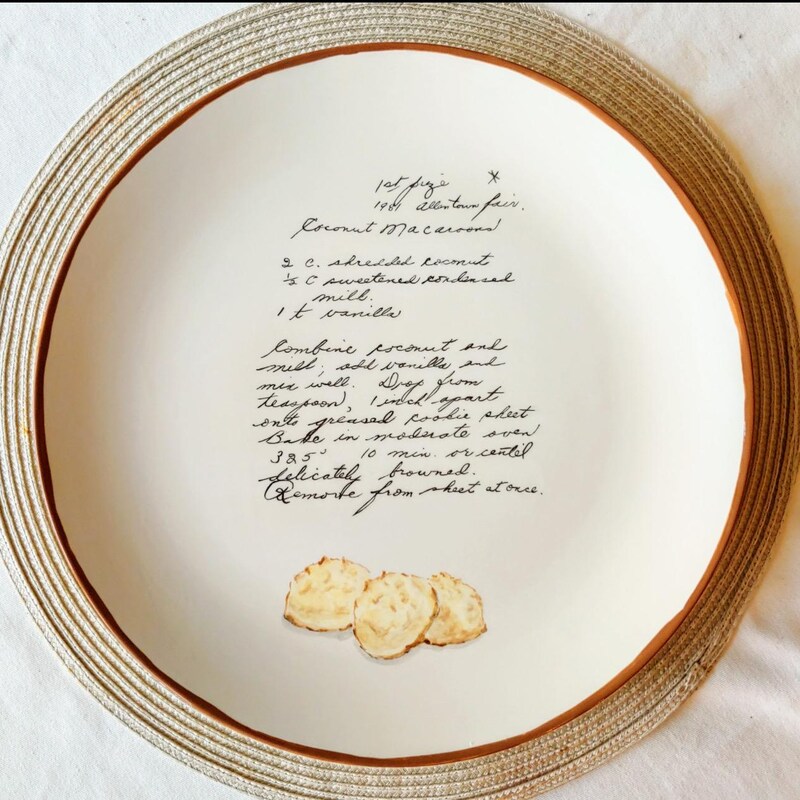 1st prize *
1981 Allentown fair.
Coconut Macaroons
2 C. shredded coconut
½ C sweetened condensed
milk.
1 t vanilla
Combine coconut and
milk; add vanilla and
mix well. Drop from
teaspoon, 1 inch apart
onto greased cookie sheet
Bake in moderate oven
325° 10 min. or until
delicately browned.
Remove from sheet at once.